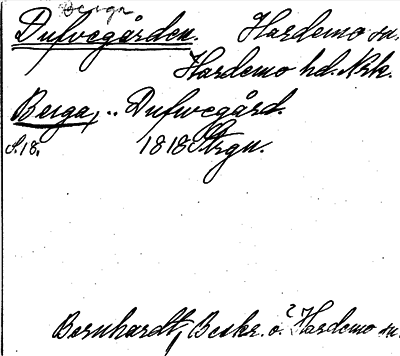 Berga
Dufvegården. Hardemo sn.
Hardemo hd. Nrk.
Berga, .. Dufwegård.
S. 18. 1818 Strgn.
Bernhardt, Beskr. o. Hardemo sn.